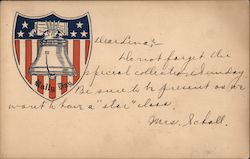 Rally Day
Dear Lena:-
Do not forget the
special collection Sunday
Be sure to be present as we
want to have a "star" class.
Mrs. Scholl.